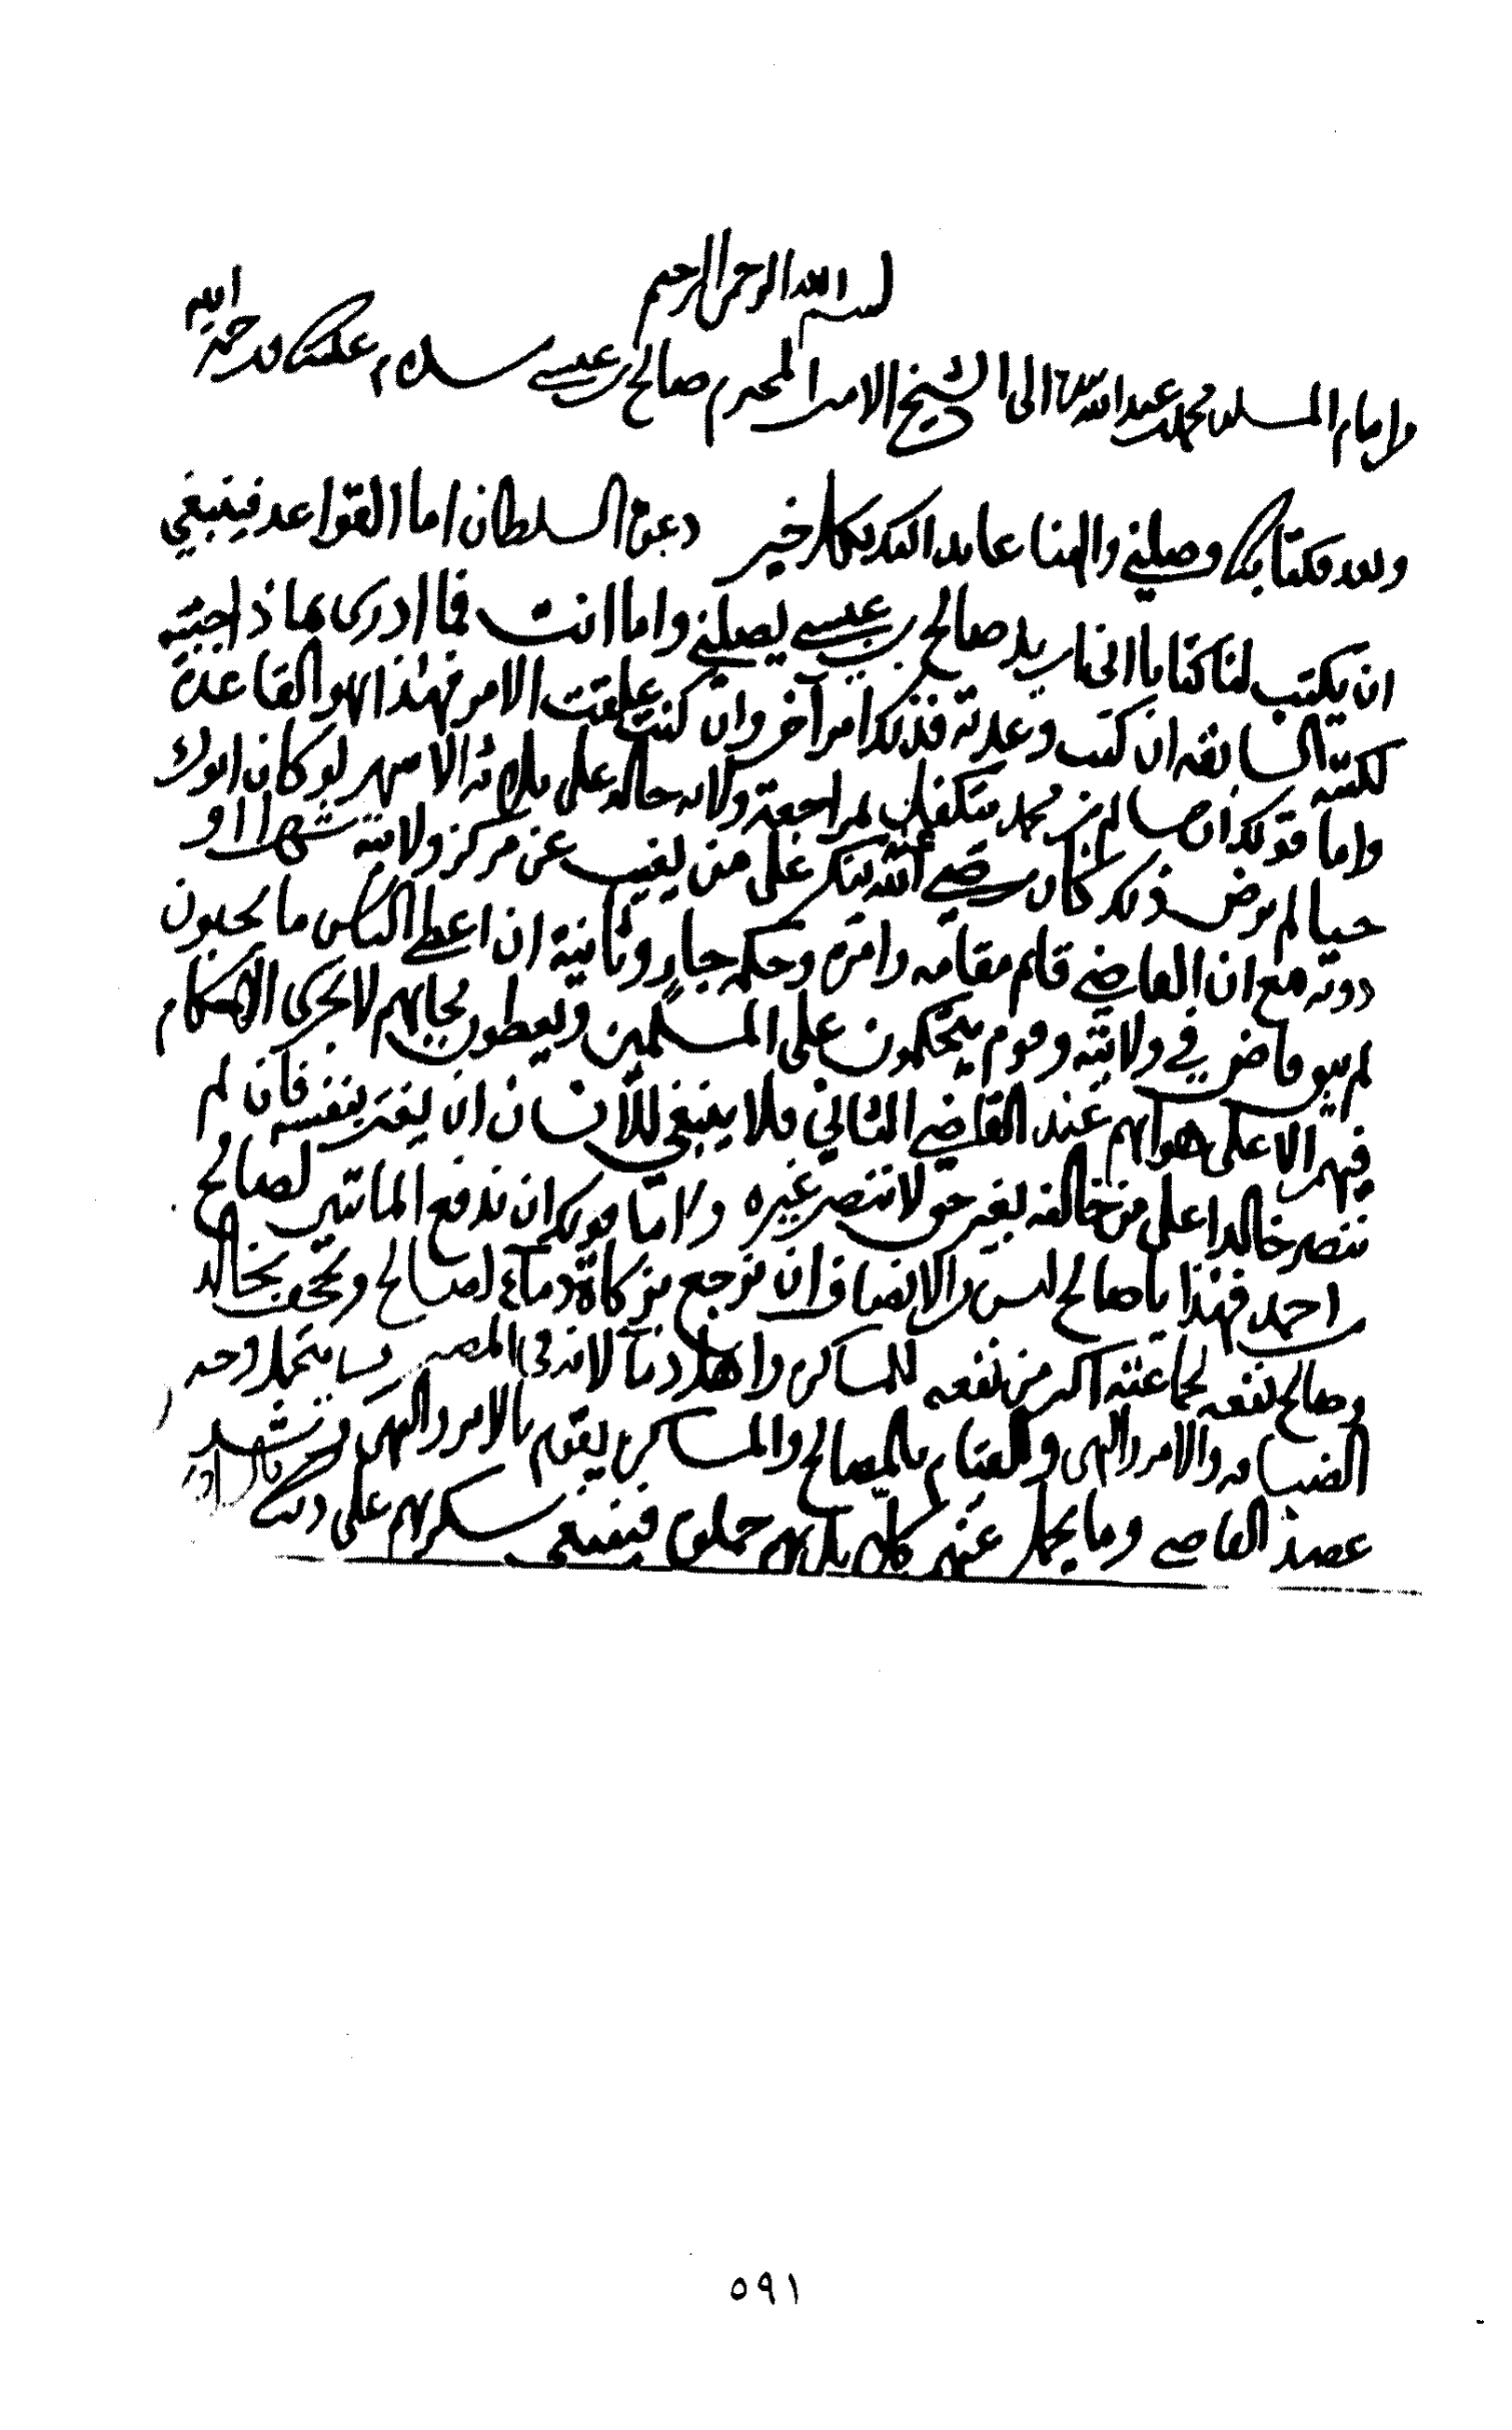 بسم الله الرحمن الرحيم
من امام المسلمين محمد بن عبدالله الى الشيخ الامير المحترم صالح بن عيسى سلام عليك ورحمة الله
وبعد فكتابك وصلني والهنا عايد اليك بكل خير وعن السلطان اما القواعد فينبغي
ان يكتب لنا كتابا اني اريد صالح بن عيسى يصلني واما انت فما ادرى بماذا اجبته
لكتبه السابقه ان كتب وعدته فذلك امر آخر وان كنت علقت الامر فهذا هو القاعدة
واما قولك ان سالم بن محمد متكفل بمراجعة ولاية حاله على ثلاثة الاشهر لو كان ابوك
حيا لم يرض ذلك كان رضي الله ينكر على من يغيب عن مركز ولايته شهرا او
دونه مع ان القاضي قائم مقامه وامره وحكمه جار وثانية ان اعطي الناس ما يحبون
لم يبق قاض في ولايته وقوم يتحكمون على المسلمين ويعطون يجابهم لا تجرى الاحكام
فيهم الا على هواهم عند القاضي الثاني فلا ينبغي للأنسان ان يغتر بنفسه فان لم
ننصر خالدا على من خالفه بغير حق لا ننصر غيره واما قولك ان ندفع المائتين لصالح
احمد فهذا يا صالح ليس والانصاف ان نرجع بزكاة دماء لصالح ونجحف بخالد
وصالح نفعه لجماعته اكبر من نفعه للمساكن واهل دما لانه في المصه يتحمل وحه
الضيافه والامر والنهى والقيام بالمصالح والمساكن يقوم بالامر والنهى ونشد
عضد القاضي وما يحمل عنهم كان بلاهم حملوه فينبغى شكرهم على ذلك
٥٩١